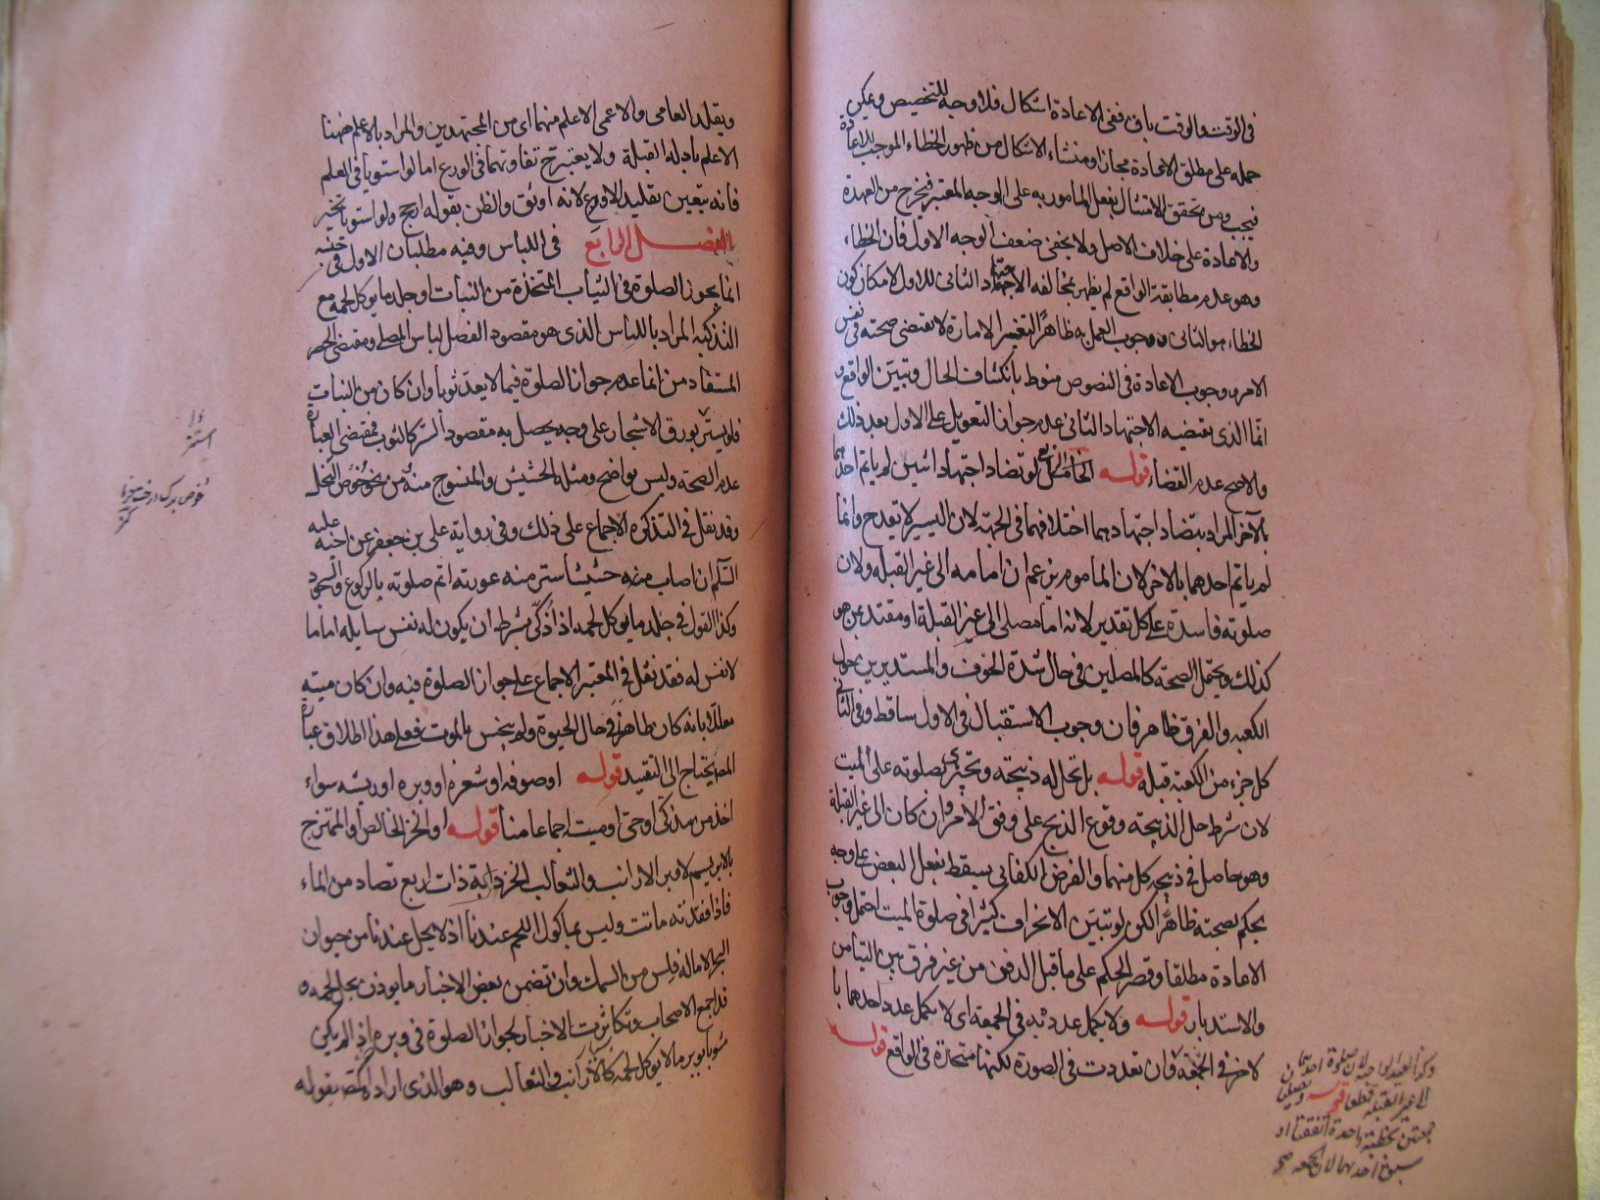 فى الوقت والوقت باق ففى الاعادة اشكال فلا وجه للتخصيص ويمكن
حمله على مطلق الاعادة مجازا ومنشاء الاشكال من ظهور الخطاء الموجب للاعادة
فيجب ومن تحقق الامتثال بفعل المامور به على الوجه المعتبر فيخرج من العهدة
والاعادة على خلاف الاصل ولا يخفى ضعف الوجه الاول فان الخطاء
وهو عدم مطابقة الواقع لم يظهر بمخالفه الاجتهاد الثانى للاول لامكان كون
الخطاء هو الثانى ووجوب العمل به ظاهرا لتغير الامارة لا يقتضى صحته فى نفس
الامر ووجوب الاعادة فى النصوص منوط بانكشاف الحال وتبين الواقع و
انما الذى يقتضيه الاجتهاد الثانى عدم جواز التعويل على الاول بعد ذلك
والاصح عدم القضاء قوله الرابع لو تضاد اجتهاد اثنين لم ياتم احدهما
بالآخر المراد بتضاد اجتهادهما اختلافهما فى الجهة لان اليسير لا يقدح وانما
لم ياتم احدهما بالاخر لان الماموم يزعم ان امامه الى غير القبله ولان
صلوته فاسدة على كل تقدير لانه اما مصلى الى غير القبلة او مقتد بمن هو
كذلك ويحتمل الصحة كالمصلين فى حال شدة الخوف والمستديرين حول
الكعبه والفرق ظاهر فان وجوب الاستقبال فى الاول ساقط وفى الثانى
كل جزء من الكعبة قبله قوله بل تحل له ذبيحته وتجزى بصلوته على الميت
لان شرط حل الذبيحة وقوع الذبح على وفق الامر وان كان الى غير القبلة
وهو حاصل فى ذبيحة كل منهما والفرض الكفائى يسقط بفعل البعض على وجه
يحكم بصحته ظاهرا لكن لو تبين الانحراف كثيرا فى صلوة الميت احتمل وجوب
الاعادة مطلقا وقصر الحكم على ما قبل الدفن من غير فرق بين التيامن
والاستدبار قوله ولا يكمل عدد به فى الجمعة اى لا يكمل عدد احدهما با
لاخر فى الجمعة وان تعددت فى الصورة لكنها متحدة فى الواقع قوله
وكذا العيد الواجبة لان صلوة احدهما
الى غير القبلة قطعا قوله ويصليان
جمعتين بخطبة واحدة اتفقتا او
سبق احدهما لان الجمعه
ويقلد العامى والاعمى الاعلم منهما اى من المجتهدين والمراد بالاعلم ههنا
الاعلم بادله القبلة ولا يعتبر ح تفاوتهما فى الورع اما لو استويا فى العلم
فانه يتعين تقليد الاورع لانه اوثق والظن بقوله ارجح ولو استويا تخير
الفصل الرابع فى اللباس وفيه مطلبان الاول فى جنسه
انما يجوز الصلوة فى الثياب المتخذة من النبات او جلد ما يوكل لحمه مع
التذكية المراد باللباس الذى هو مقصود الفصل لباس المصلى ومقتضى الحصر
المستفاد من انما عدم جواز الصلوة فيما لا يعد ثوبا وان كان من النبات
فلو يستتر بورق الاشجار على وجه يحصل به مقصود الستر كالثوب فمقتضى العبارة
عدم الصحة وليس بواضح ومثله الحشيش والمنسوج منه ومن نحو خوص النخل
وقد نقل فى التذكرة الاجماع على ذلك وفى رواية على بن جعفر عن اخيه عليه
السلم ان اصاب حشيشا ستر منه عورته اتم صلوته بالركوع والسجود
وكذا القول فى جلد ما يوكل لحمه اذا ذكى بشرط ان يكون له نفس سايله اما ما
لا نفس له فقد نقل فى المعتبر الاجماع على جواز الصلوة فيه وان كان ميته
معللا بانه كان طاهرا فى حال الحيوة ولم ينجس بالموت فعلى هذا اطلاق عبارة
المص يحتاج الى التقييد قوله او صوفه او شعره او وبره او ريشه سواء
اخذ من مذكى او حى او ميت اجماعا منا قوله او الخز الخالص او الممتزج
بالابريسم لا وبر الارانب والثعالب الخز دابة ذات اربع تصاد من الماء
فاذا فقدته ماتت وليس بماكول اللحم عندنا اذ لا يحل عندنا من حيوان
البحر الا ماله فلس من السمك وان تضمن بعض الاخبار ما يوذن بحل لحمه و
قد اجمع الاصحاب وتكاثرت الاخبار بجواز الصلوة فى وبره اذا لم يكن
مشوبا بوبر ما لا يوكل لحمه كالارانب والثعالب وهو الذى اراد المص بقوله
استتر
خوص برك درخت خرما
كنز